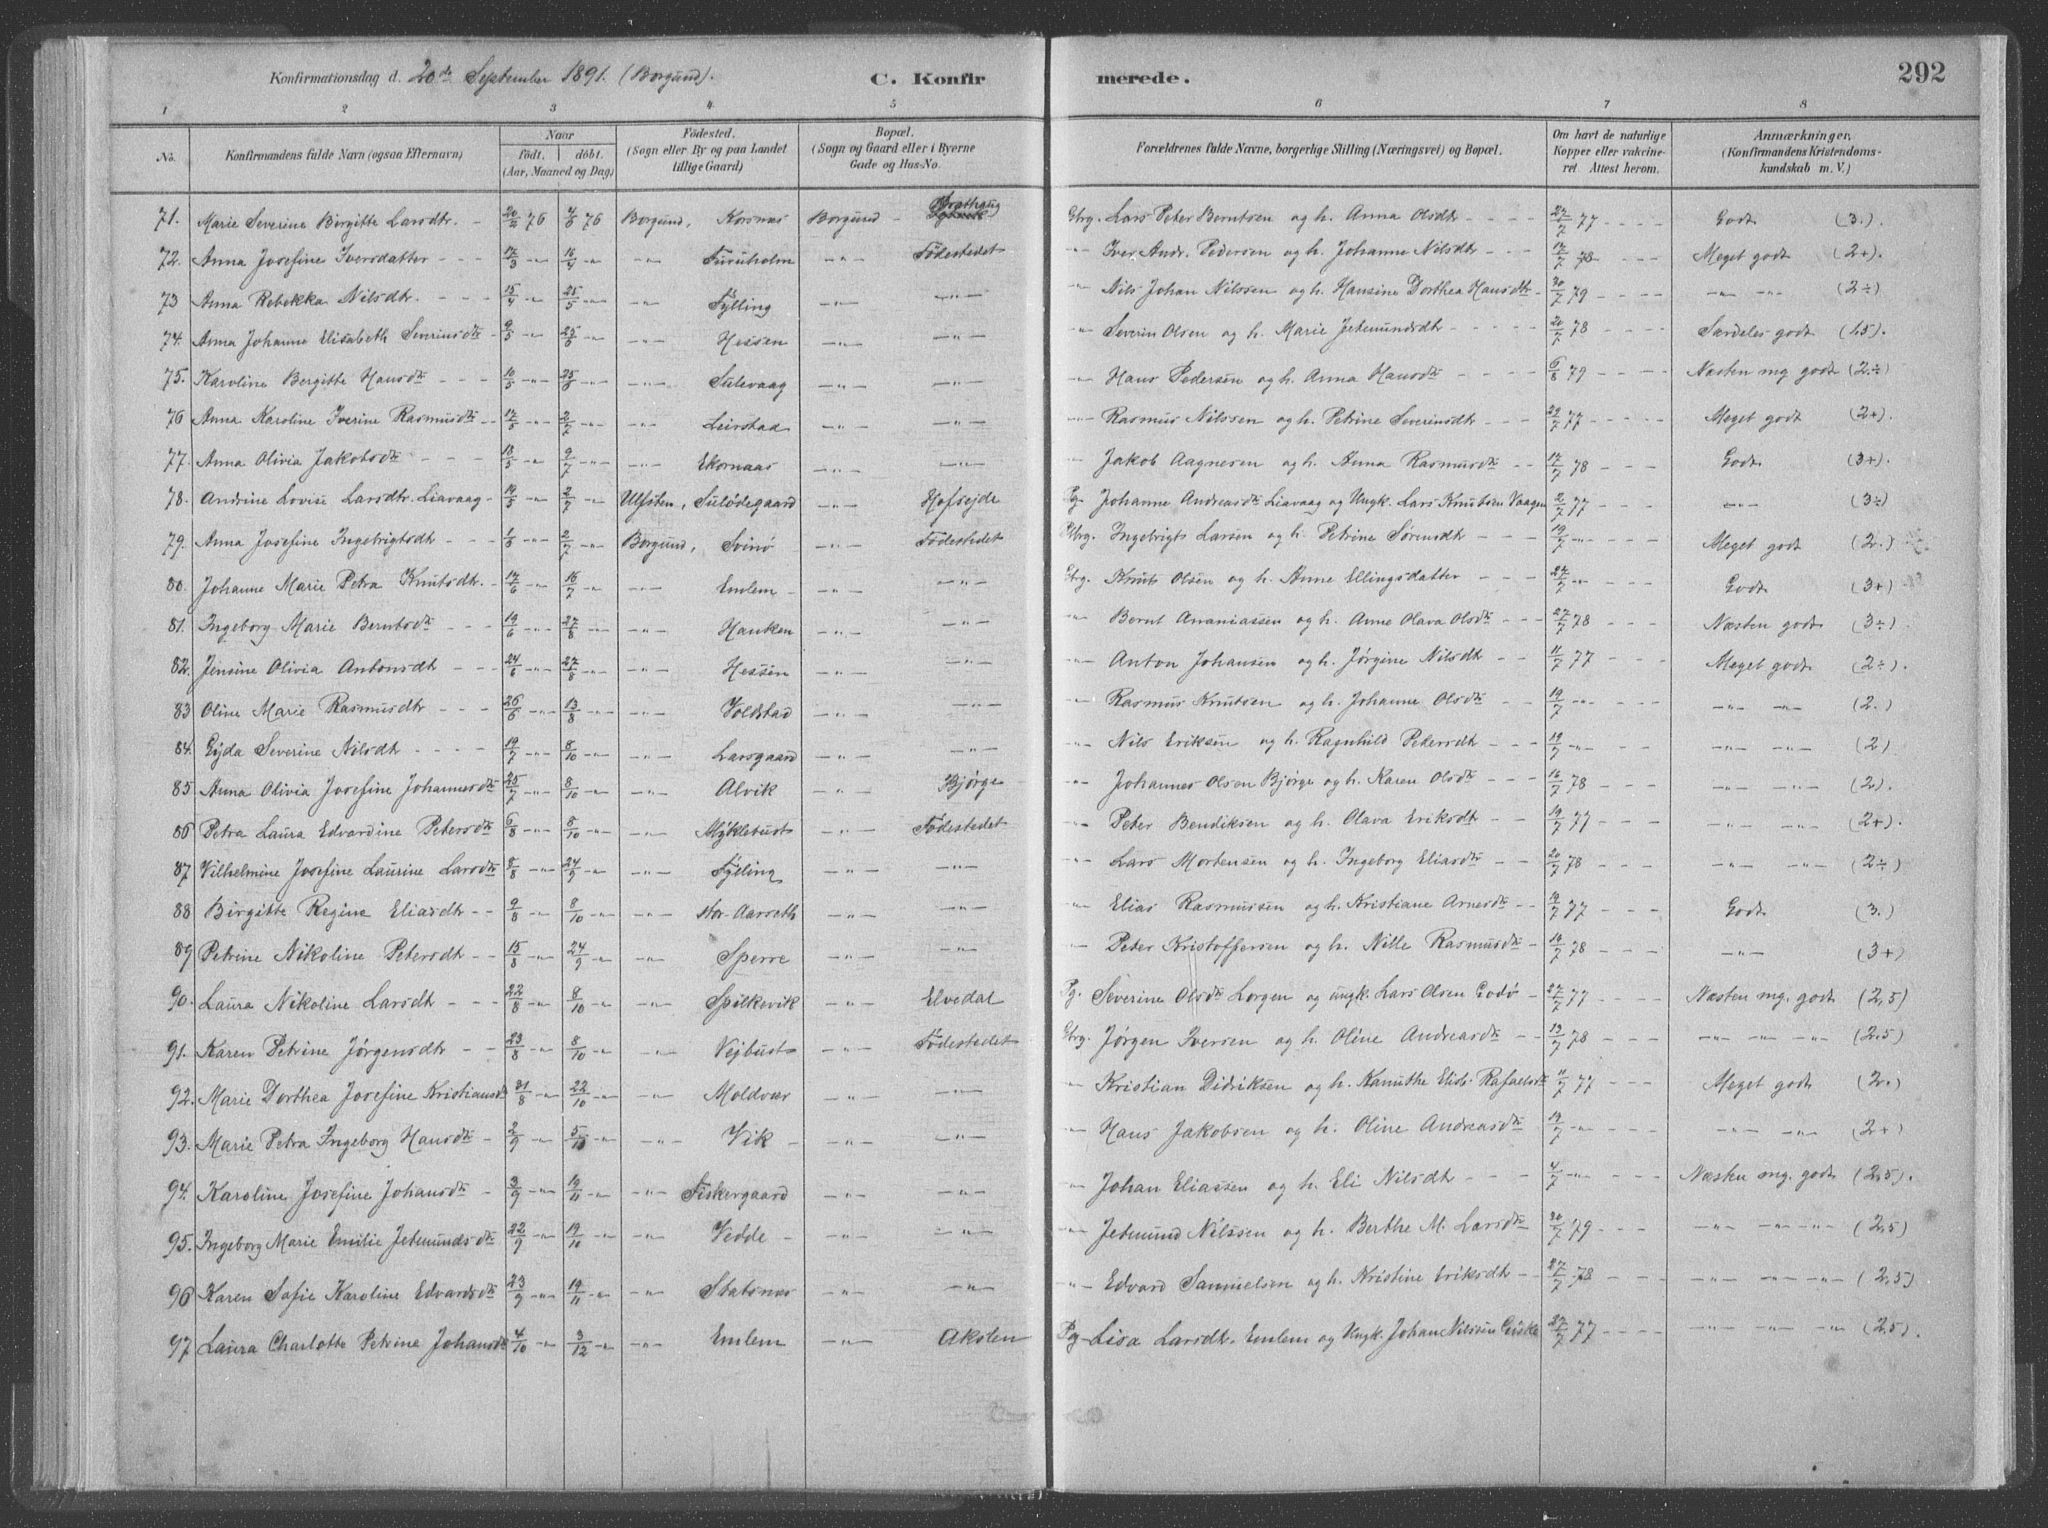 Konfirmationsdag d. 20de September 1891. (Borgund). C. Konfirmerede. 292
1 2 3 4 5 6 7 8
No. Konfirmandens fulde Navn (ogsaa Efternavn) Naar født. døbt. (Aar, Maaned og Dag) Fødested. (Sogn eller By og paa Landet tillige Gaard) Bopæl. (Sogn og Gaard eller i Byerne Gade og Hus-No. Forældrenes fulde Navne, borgerlige Stilling (Næringsvei) og Bopæl. Om havt de naturlige Kopper eller vakcineret. Attest herom. Anmærkninger. (Konfirmandens Kristendomskundskab m. V.)
71. Marie Severine Birgitte Larsdtr. - 20/2 76 4/6 76 Borgund, Korsnæs Borgund - Gbrg. Lars Peter Berntsen og h. Anna Olsdtr - - - - 27/7 77 - - - - Godt (3.)
72. Anna Josefine Iversdatter - - 17/3 -"- 16/4 -"- -"- Furuholm -"- Fødestedet -"- Iver Andr. Pedersen og h. Johanne Nilsdtr - - - - 17/7 78 - - - - Meget godt (2+).
73 Anna Rebekka Nilsdtr. - - - 15/4 -"- 25/5 -"- -"- Fylling -"- -"- -"- Nils Johan Nilssen og h. Hansine Dorthea Hansdtr - 30/7 79 - - - - -"- -"- (2÷)
74. Anna Johanne Elisabeth Severinsdtr - 9/5 -"- 25/6 -"- -"- Hessen -"- -"- -"- Severin Olsen og h. Marie Jetmundsdtr - - - - - 20/7 78 - - - - Særdeles godt (1,5).
75. Karoline Bergitte Hansdtr - - - 10/5 -"- 25/6 -"- -"- Sulevaag -"- -"- -"- Hans Pedersen og h. Anna Hansdtr - - - - - 6/8 79 - - - - Næsten mg. godt (2÷)
76 Anna Karoline Iverine Rasmusdtr - - 17/5 -"- 2/7 -"- -"- Leirstad -"- -"- -"- Rasmus Nilssen og h. Petrine Severinsdtr - - - - 29/7 77 - - - - Meget godt (2+)
77. Anna Olivia Jakobsdtr - - - 18/5 -"- 9/7 -"- -"- Ekornaas -"- -"- - Jakob Aagnesen og h. Anna Rasmusdtr - - 17/7 78 - - - - Godt (3+).
78. Andrine Lovise Larsdtr. Liavaag - 19/5 -"- 2/7 -"- Ulfsten, Sulødegaard -"- Hofsejde Pg. Johanne Andreasdtr Liavaag og Ungk. Lars Knutsen Vaagen 2/7 77 - - - -"- (3÷)
79. Anna Josefine Ingebrigtsdtr - 1/6 -"- 2/7 -"- Borgund, Svinø -"- Fødestedet Gbrg. Ingebrigts Larsen og h. Petrine Sørensdtr - - - 19/7 -"- - - - Meget godt (2.)
80. Johanne Marie Petra Knutsdtr. - 17/6 -"- 16/7 -"- -"- Emlem - -"- -"- Gbrg. Knut Olsen og h. Anne Ellingsdatter - - - 27/7 -"- - - - Godt (3+)
81. Ingeborg Marie Berntsdtr - - - 19/6 -"- 27/8 -"- -"- Hanken -"- -"- -"- Bernt Ananiassen og h. Anne Olava Olsdtr - - - 27/7 78 - - - Næsten godt (3÷)
82. Jensine Olivia Antonsdtr - - - 24/6 -"- 27/8 -"- -"- Hessen -"- -"- -"- Anton Johansen og h. Jørgine Nilsdtr - - 11/7 77 - - - Meget godt (2÷).
83 Oline Marie Rasmusdtr - - - 26/6 -"- 13/8 -"- -"- Voldstad -"- -"- -"- Rasmus Knutsen og h. Johanne Olsdtr - - - 19/7 -"- - - - -"- -"- (2.)
84. Gyda Severine Nilsdtr - - - - 19/7 -"- 8/10 -"- -"- Larsgaard -"- -"- -"- Nils Eriksen og h. Ragnhild Petersdtr - - - 19/7 -"- - - - -"- -"- (2)
85 Anna Olivia Josefine Johannesdtr 25/7 -"- 8/10 -"- -"- Alvik -"- Bjørge -"- Johannes Olsen Bjørge og h. Karen Olsdtr - - - 16/7 78 - - - -"- -"- (2).
86 Petra Laura Edvardine Petersdtr 6/8 -"- 8/10 -"- -"- Myklebust -"- Fødestedet -"- Peter Bendiksen og h. Olava Eriksdtr - - - 19/7 77 - - - -"- -"- (2+)
87 Vilhelmine Josefine Laurine Larsdtr 8/8 -"- 24/9 -"- -"- Fylling -"- -"- -"- Lars Mortensen og h. Ingeborg Eliasdtr - - - 20/7 78 - - - -"- -"- (2÷)
88 Birgitte Regine Eliasdtr - - 9/8 -"- 8/10 -"- -"- Stor-Aarseth -"- -"- -"- Elias Rasmussen og h. Kristiane Arnesdtr - - 19/7 77 - - - Godt (3.)
89 Petrine Nikoline Petersdtr - - 15/8 -"- 24/9 -"- -"- Sperre -"- -"- -"- Peter Kristoffersen og h. Nille Rasmusdtr - 16/7 78 - - - -"- (3+)
90. Laura Nikoline Larsdtr - - - 22/8 -"- 8/10 -"- -"- Spilkevik -"- Elvedal Pg. Severine Olsdtr Lorgen og ungk. Lars Olsen Godø - 27/7 77 - - - Næsten mg. godt (2,5)
91. Karen Petrine Jørgensdtr - - 23/8 -"- 8/10 -"- -"- Vejbust -"- Fødestedet Gbrg. Jørgen Iversen og h. Oline Andreasdtr - - 13/7 78 - - - -"- -"- -"- (2,5)
92. Marie Dorthea Josefine Kristiansdtr 31/8 -"- 22/10 -"- -"- Moldvær -"- -"- -"- Kristian Didriksen og h. Kanuthe Elis. Rafaelsdtr 11/7 77 - - - Meget godt (2.)
93. Marie Petra Ingeborg Hansdtr - 2/9 -"- 5/10 -"- -"- Vik - -"- -"- -"- Hans Jakobsen og h. Oline Andreasdtr 17/7 -"- - - - -"- -"- (2+)
94. Karoline Josefine Johansdtr - 3/9 -"- 19/11 -"- -"- Fiskergaard -"- -"- -"- Johan Eliassen og h. Eli Nilsdtr - - - 4/7 -"- - - - Næsten mg. godt (2,5).
95. Ingeborg Marie Emilie Jetmundsdtr 22/9 -"- 19/10 -"- -"- Vedde - -"- -"- -"- Jetmund Nilssen og h. Berthe M. Larsdtr 30/7 79 - - - -"- -"- -"- (2,5)
96 Karen Sofie Karoline Edvardsdtr 23/9 -"- 19/11 -"- -"- Statsnæs -"- -"- -"- Edvard Samuelsen og h. Kristine Eriksdtr - - 27/7 78 - - - -"- -"- -"- (2,5)
97 Laura Charlotte Petrine Johansdtr 4/10 -"- 3/12 -"- -"- Emlem -"- Akslen Pg - Lisa Larsdtr. Emlem og Ungk. Johan Nilssen Giske 27/7 77 - - - -"- -"- -"- (2,5).